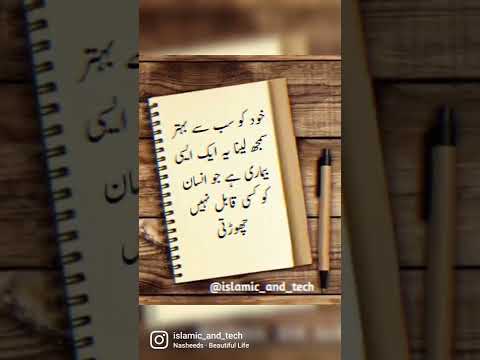 خود کو سب سے بہتر
سمجھ لینا یہ ایک ایسی
بیماری ہے جو انسان
کو کسی قابل نہیں
چھوڑتی
@islamic_and_tech
islamic_and_tech
Nasheeds · Beautiful Life